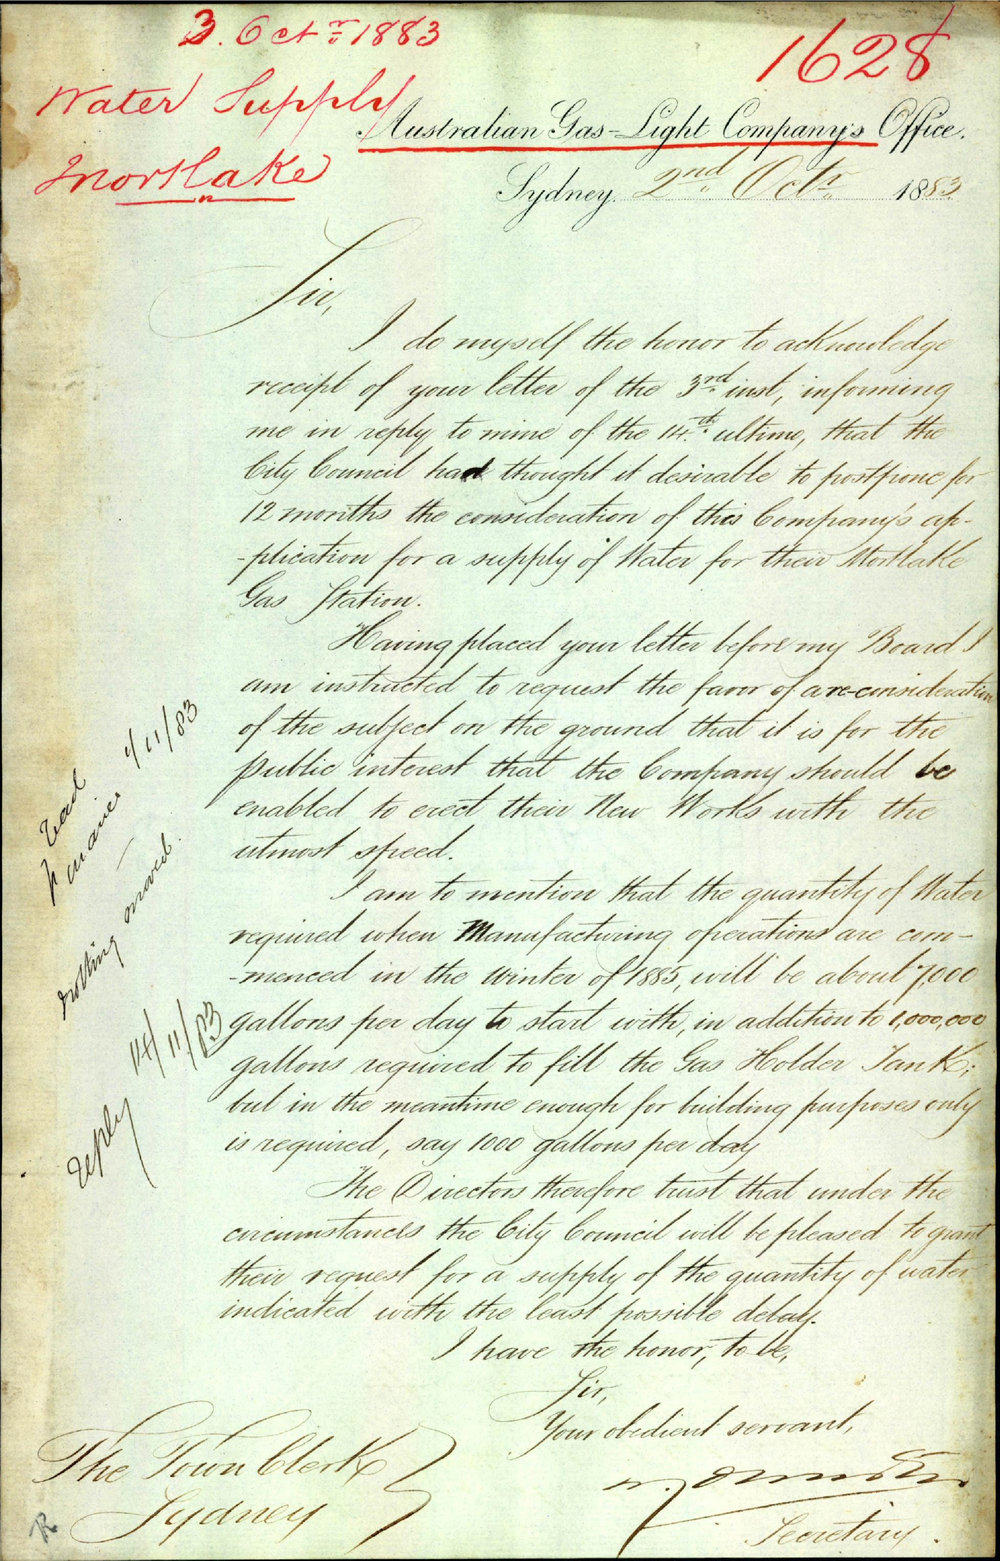 3. Octr 1883
1628
Water Supply
Mortlake
Australian Gas-Light Company's Office.
Sydney. 2nd Octr 1883
Sir,
I do myself the honor to acknowledge
receipt of your letter of the 3rd inst, informing
me in reply to mine of the 14th ultimo, that the
City Council had thought it desirable to postpone for
12 months the consideration of this Company's ap-
-plication for a supply of Water for their Mortlake
Gas Station.
Having placed your letter before my Board I
am instructed to request the favor of a re-consideration
of the subject on the ground that it is for the
public interest that the Company should be
enabled to erect their New Works with the
utmost speed.
I am to mention that the quantity of Water
required when Manufacturing operations are com-
-menced in the Winter of 1885, will be about 7,000
gallons per day to start with, in addition to 1,000,000
gallons required to fill the Gas Holder Tank;
but in the meantime enough for building purposes only
is required, say 1000 gallons per day
The Directors therefore trust that under the
circumstances the City Council will be pleased to grant
their request for a supply of the quantity of water
indicated with the least possible delay.
I have the honor, to be,
Sir,
Your obedient servant,
Secretary.
The Town Clerk
Sydney
R
read
Finance 1/11/83
nothing moved.
reply 14/11/83